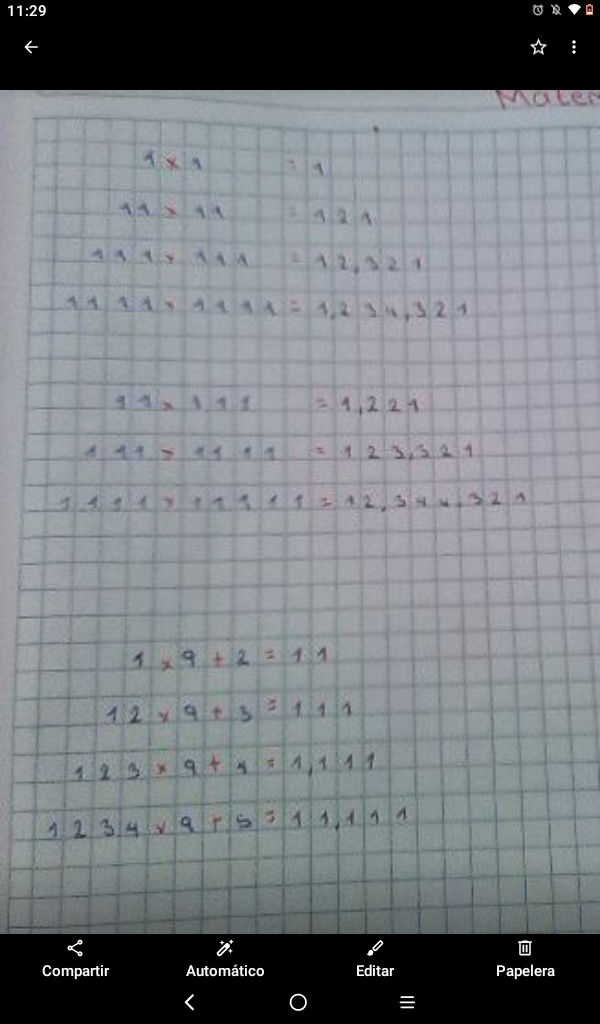 11:29
Mater
1 × 1 = 1
11 × 11 = 121
111 × 111 = 12,321
1111 × 1111 = 1,234,321
11 × 111 = 1,221
111 × 1111 = 123,321
1111 × 11111 = 12,344,321
1 × 9 + 2 = 11
12 × 9 + 3 = 111
123 × 9 + 4 = 1,111
1234 × 9 + 5 = 11,111
Compartir Automático Editar Papelera